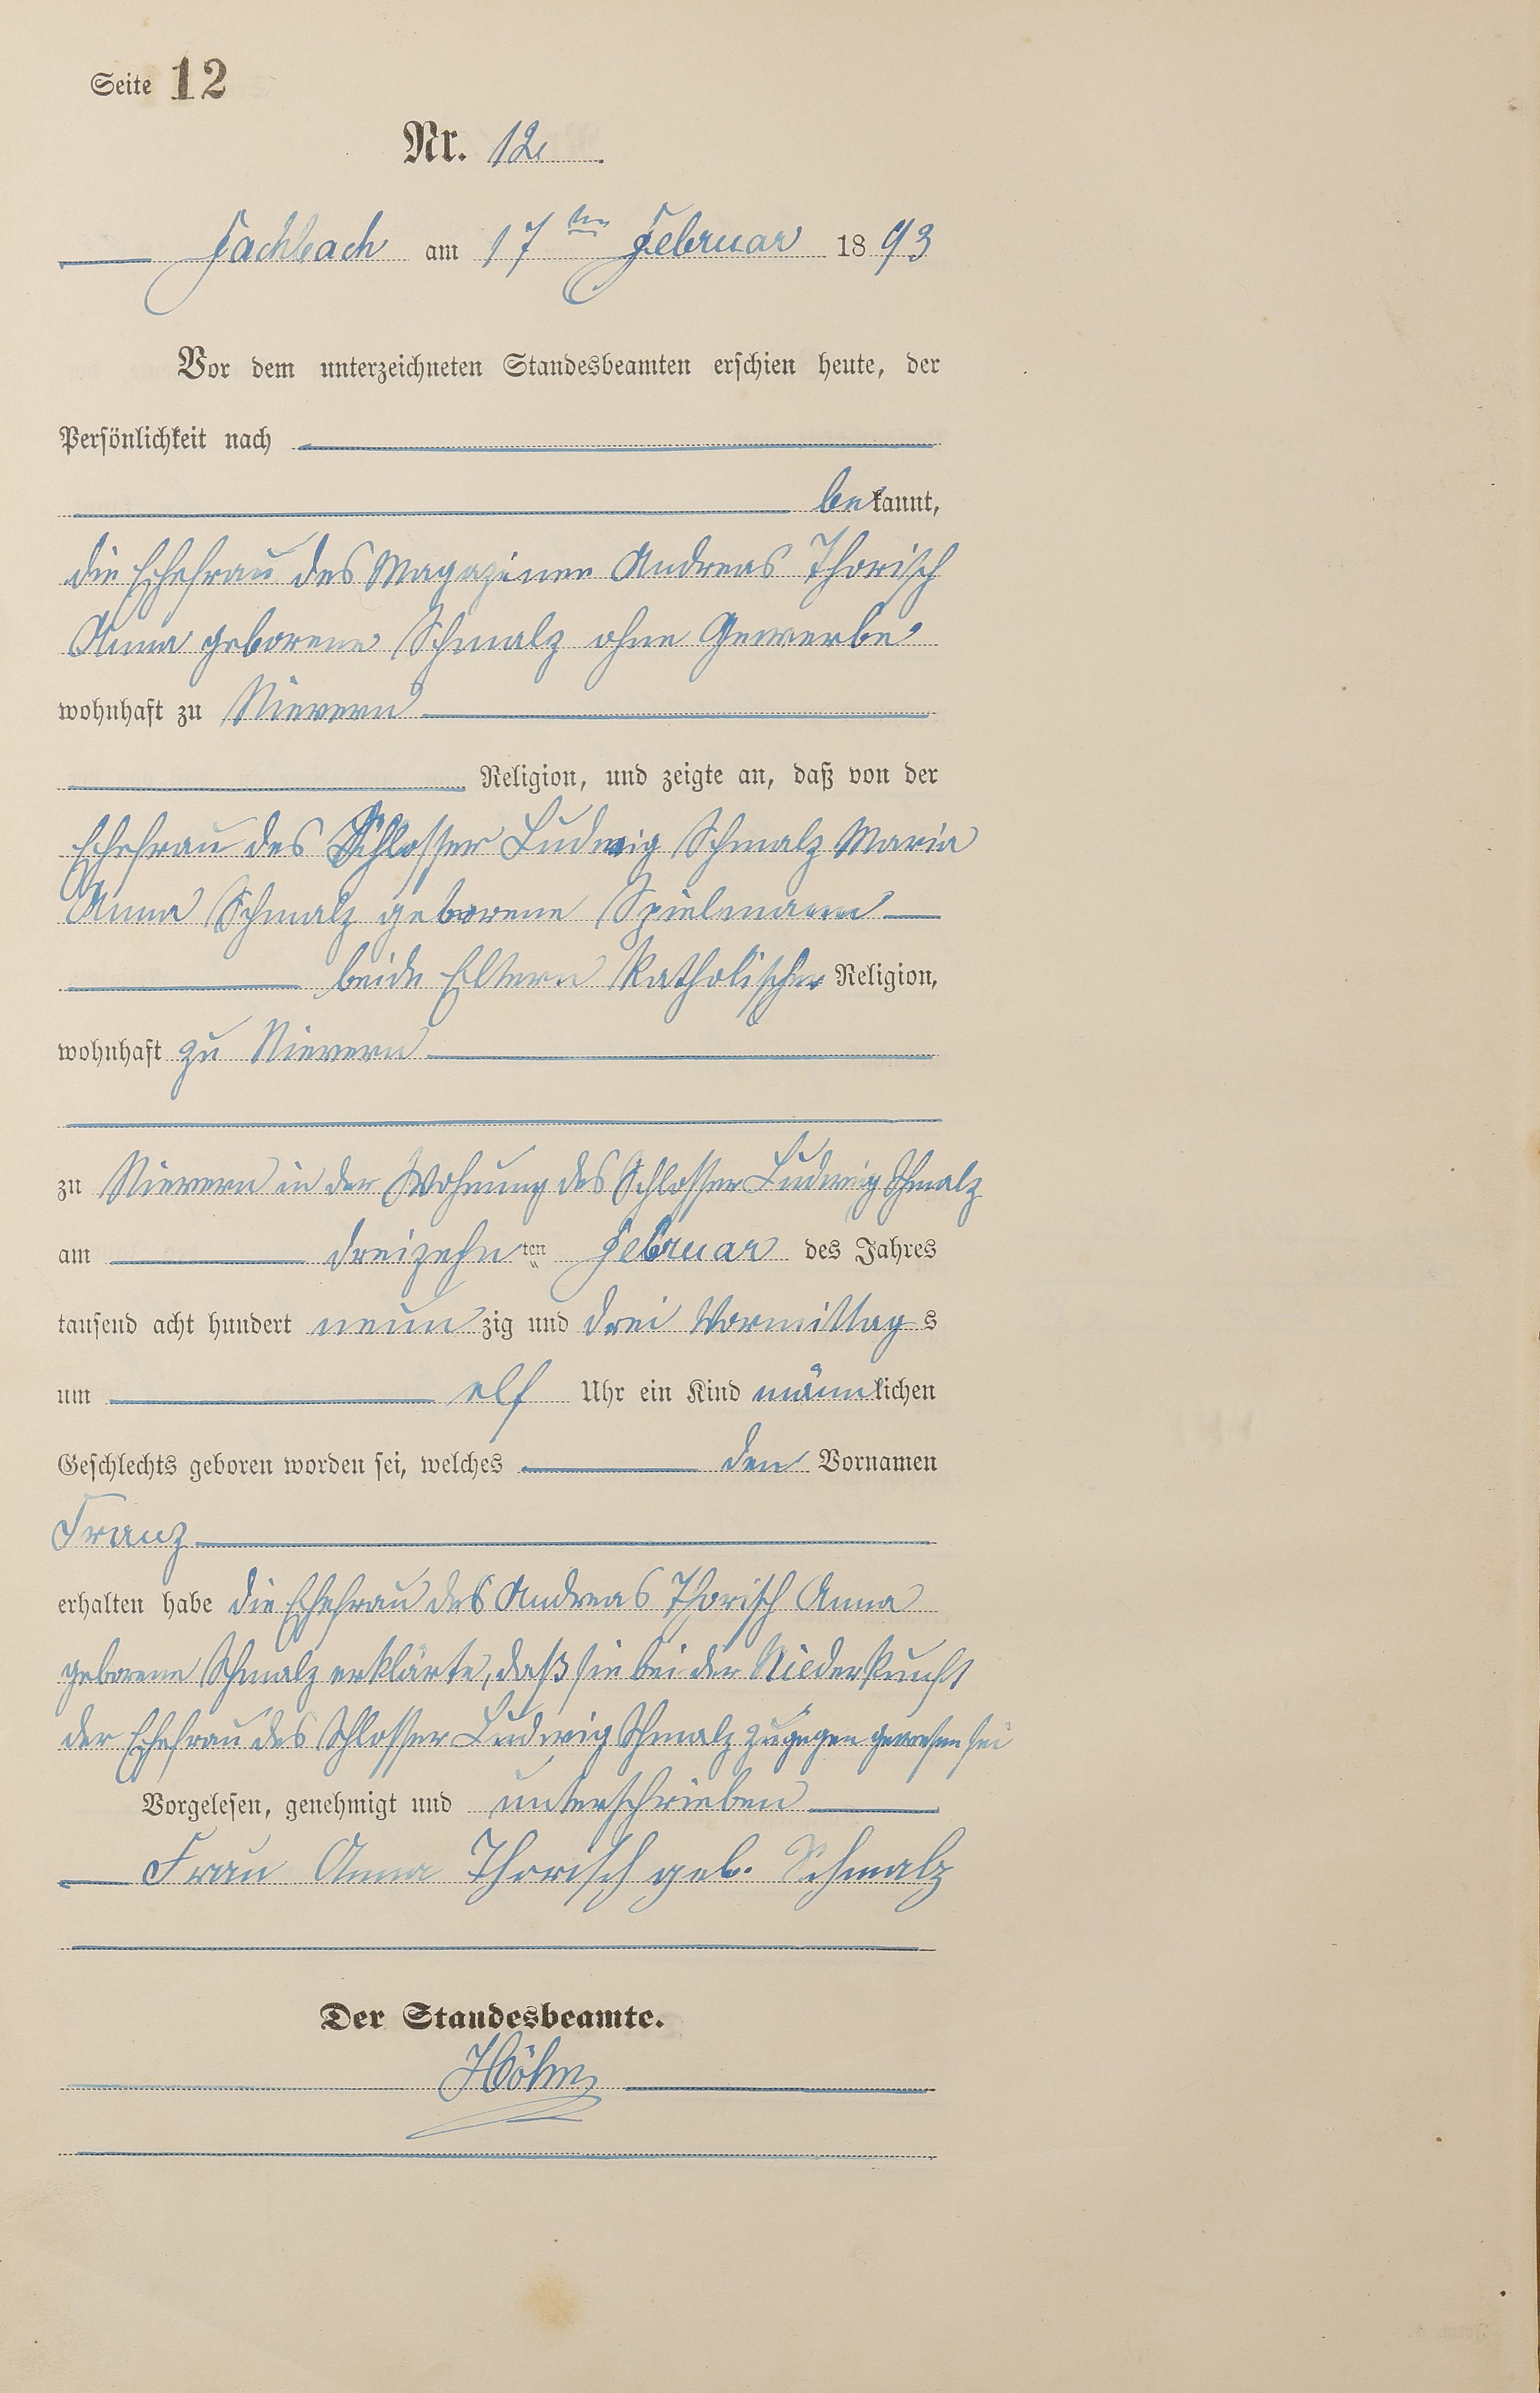 Seite 12
Nr. 12.
Fachbach am 17ten Februar 1893
Vor dem unterzeichneten Standesbeamten erschien heute, der
Persönlichkeit nach
bekannt,
die Ehefrau des Magaziner Andreas Thorisch
Anna geborene Schmalz ohne Gewerbe
wohnhaft zu Nievern
Religion, und zeigte an, daß von der
Ehefrau des Schlosser Ludwig Schmalz Maria
Anna Schmalz geborene Spielmann
beide Eltern katholischer Religion,
wohnhaft zu Nievern
zu Nievern in der Wohnung des Schlosser Ludwig Schmalz
am dreizehnten Februar des Jahres
tausend acht hundert neunzig und drei Vormittags
um elf Uhr ein Kind männlichen
Geschlechts geboren worden sei, welches den Vornamen
Franz
erhalten habe die Ehefrau des Andreas Thorisch Anna
geborene Schmalz erklärte, daß sie bei der Niederkunft
der Ehefrau des Schlosser Ludwig Schmalz zugegen gewesen sei
Vorgelesen, genehmigt und unterschrieben
Frau Anna Thorisch geb. Schmalz
Der Standesbeamte.